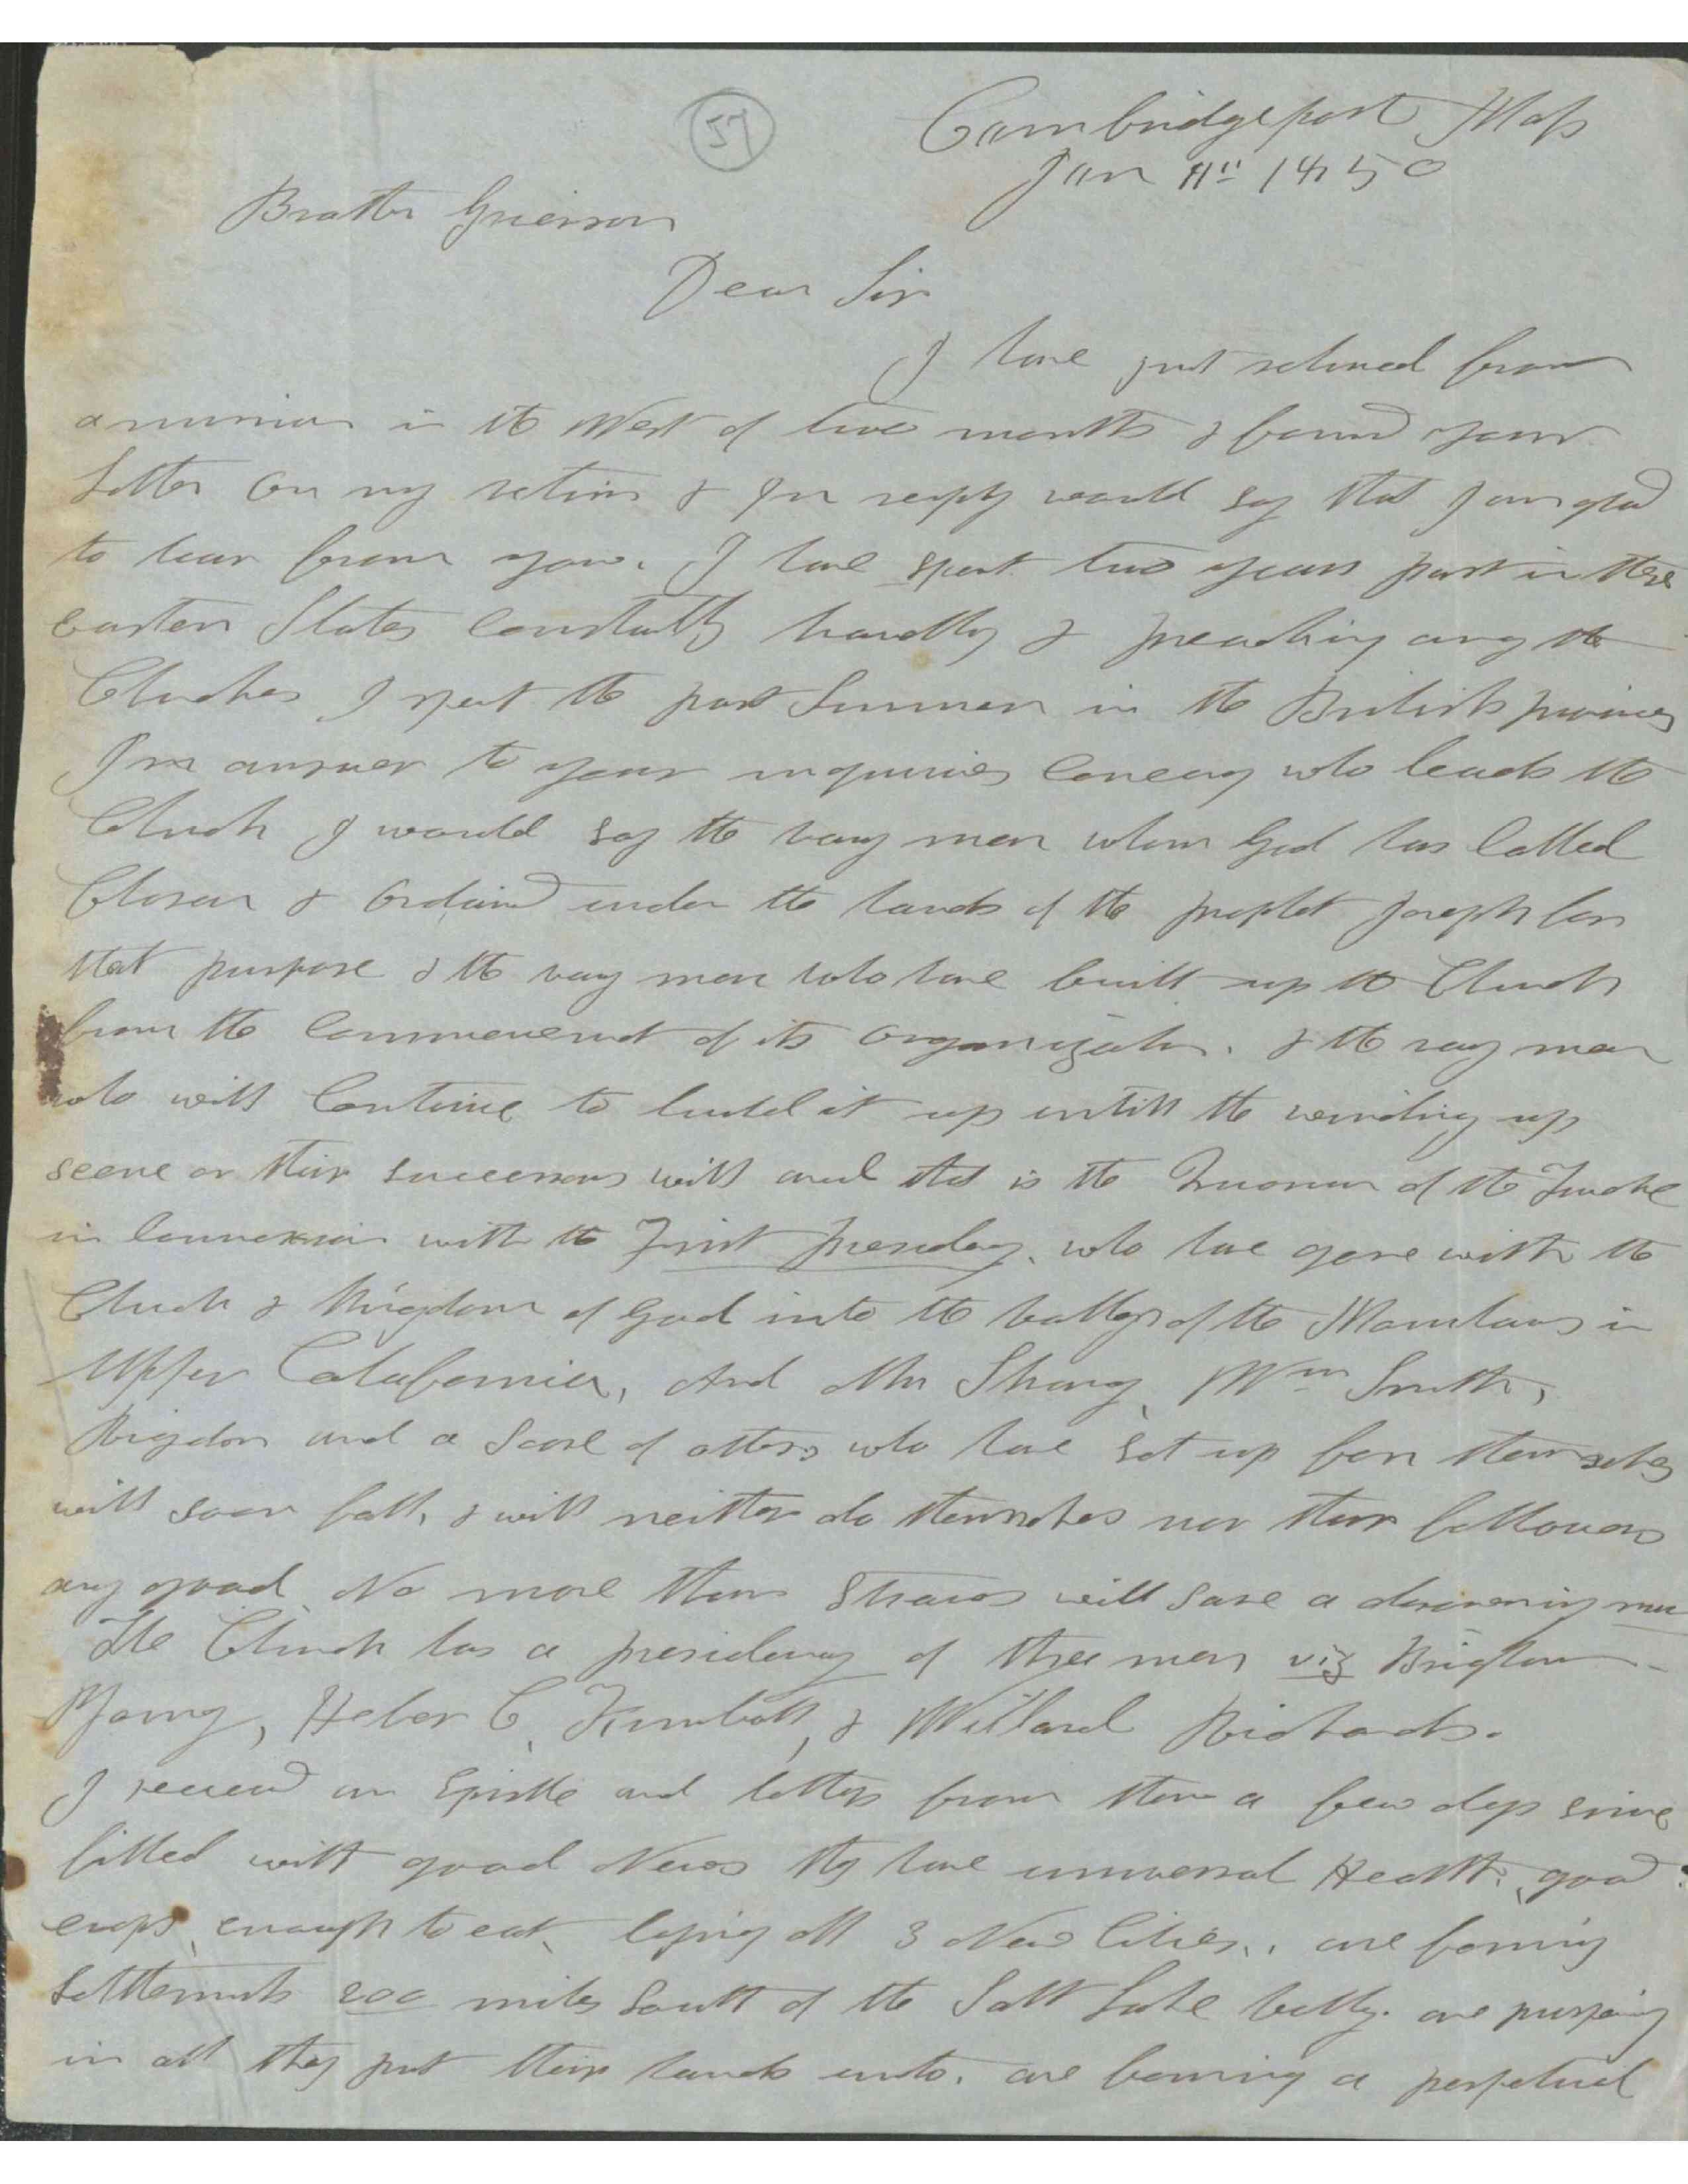 57
Cambridgeport Mass
Jan 1850
Brother Grierson
Dear Sir
I have just returned from
a mission in the West of two months & found your
letter on my return & In reply would say that I am glad
to hear from you. I have spent two years past in these
Eastern States Constantly travelling & preaching among the
Churches I spent the past Summer in the British provinces
In answer to your inquiries Concerning who leads the
Church I would say the very men whom God has Called
Chosen & Ordained under the hands of the prophet Joseph for
that purpose & the very men who have built up the Church
from the Commencement of its organization. & the very men
who will Continue to build it up untill the winding up
scene or their successors will and that is the Quorum of the Twelve
in Connexion with the First Presidency. who have gone with the
Church & Kingdom of God into the valleys of the Mountains in
Upper Calafornia, And Mr Strang, Wm Smith,
Rigdon and a Score of others who have set up for themselves
will soon fall, & will neither do themselves nor their followers
any good No more than Straws will save a drowning man
The Church has a presidency of three men viz Brigham
Young, Heber C, Kimball, & Willard Richards.
I received an Epistle and letters from them a few days since
filled with good News they have universal Health, good
crops, enough to eat, laying off 3 New Cities,, are forming
Settlements 200 miles South of the Salt Lake valley. are prospering
in all they put their hands unto. are forming a perpetual